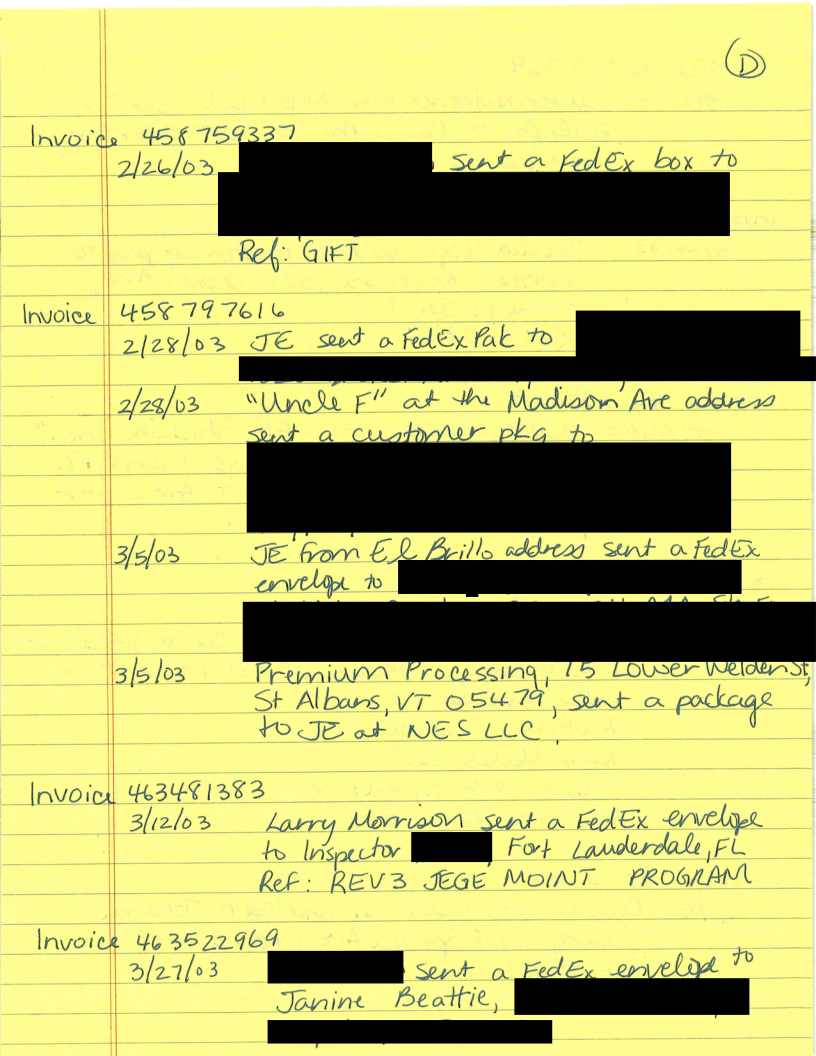 D
Invoice 458759337
2/26/03 sent a FedEx box to
Ref: GIFT
Invoice 458797616
2/28/03 JE sent a FedEx Pak to
2/28/03 "Uncle F" at the Madison Ave address
sent a customer pkg to
3/5/03 JE from El Brillo address sent a FedEx
envelope to
3/5/03 Premium Processing, 15 Lower Welden St,
St Albans, VT 05479, sent a package
to JE at NES LLC.
Invoice 463481383
3/12/03 Larry Morrison sent a FedEx envelope
to Inspector , Fort Lauderdale, FL
Ref: REV3 JEGE MOINT PROGRAM
Invoice 463522969
3/27/03 sent a FedEx envelope to
Janine Beattie,